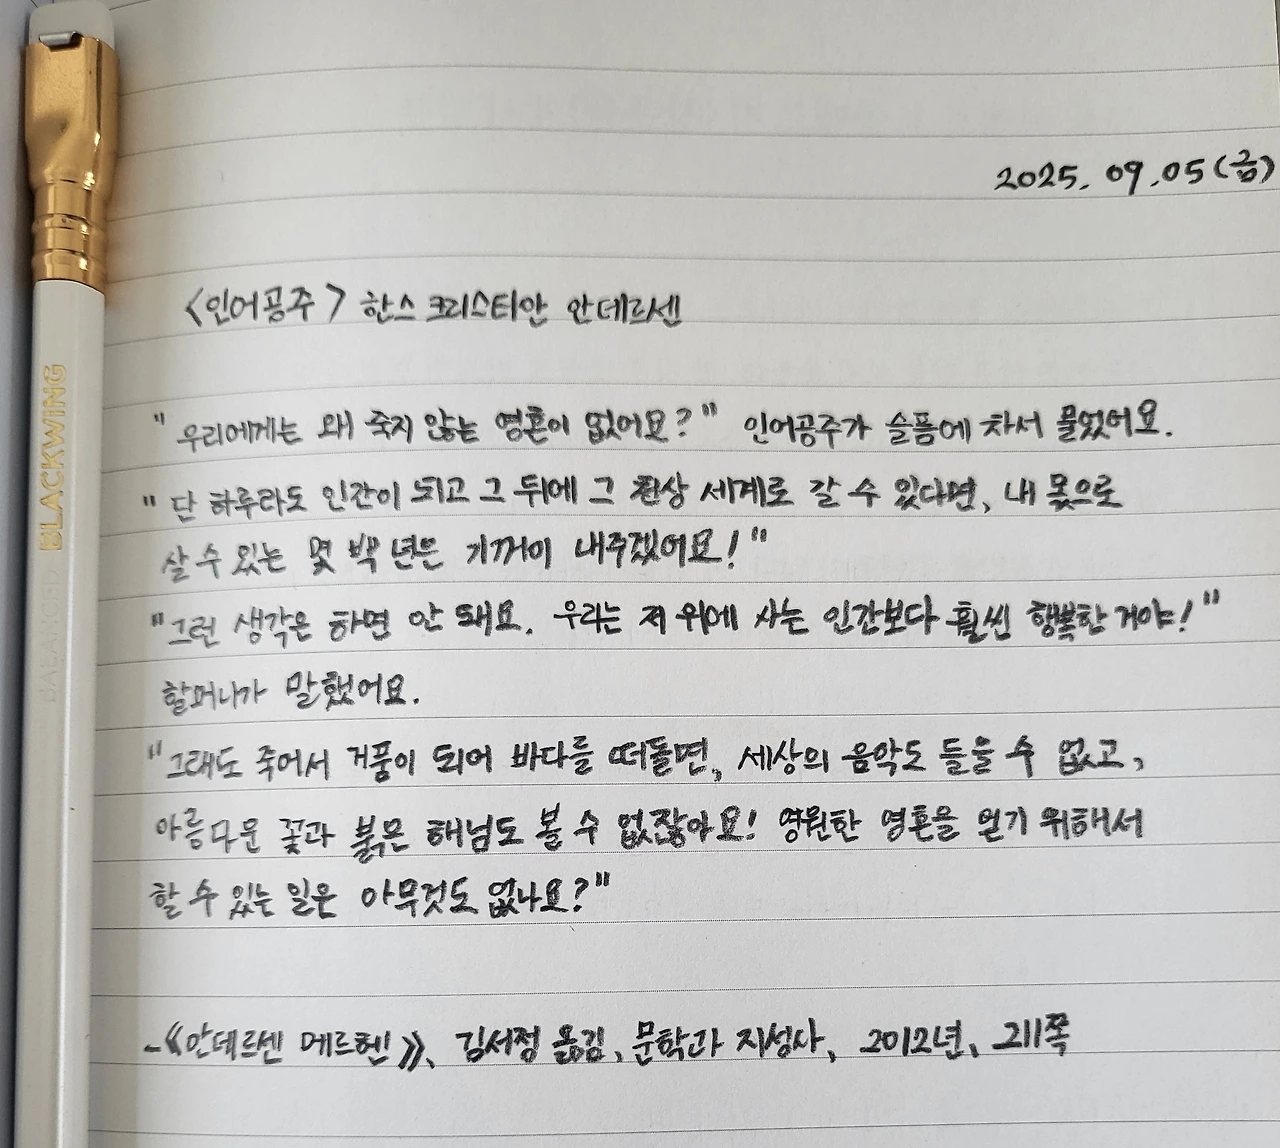 2025. 09. 05 (금)
<인어공주> 한스 크리스티안 안데르센
"우리에게는 왜 죽지 않는 영혼이 없어요?" 인어공주가 슬픔에 차서 물었어요.
"단 하루라도 인간이 되고 그 뒤에 그 천상 세계로 갈 수 있다면, 내 몫으로
살 수 있는 몇 백 년은 기꺼이 내주겠어요!"
"그런 생각은 하면 안 돼요. 우리는 저 위에 사는 인간보다 훨씬 행복한 거야!"
할머니가 말했어요.
"그래도 죽어서 거품이 되어 바다를 떠돌면, 세상의 음악도 들을 수 없고,
아름다운 꽃과 붉은 해님도 볼 수 없잖아요! 영원한 영혼을 얻기 위해서
할 수 있는 일은 아무것도 없나요?"
-《안데르센 메르헨》, 김서정 옮김, 문학과 지성사, 2012년, 211쪽
BALANCED BLACKWING